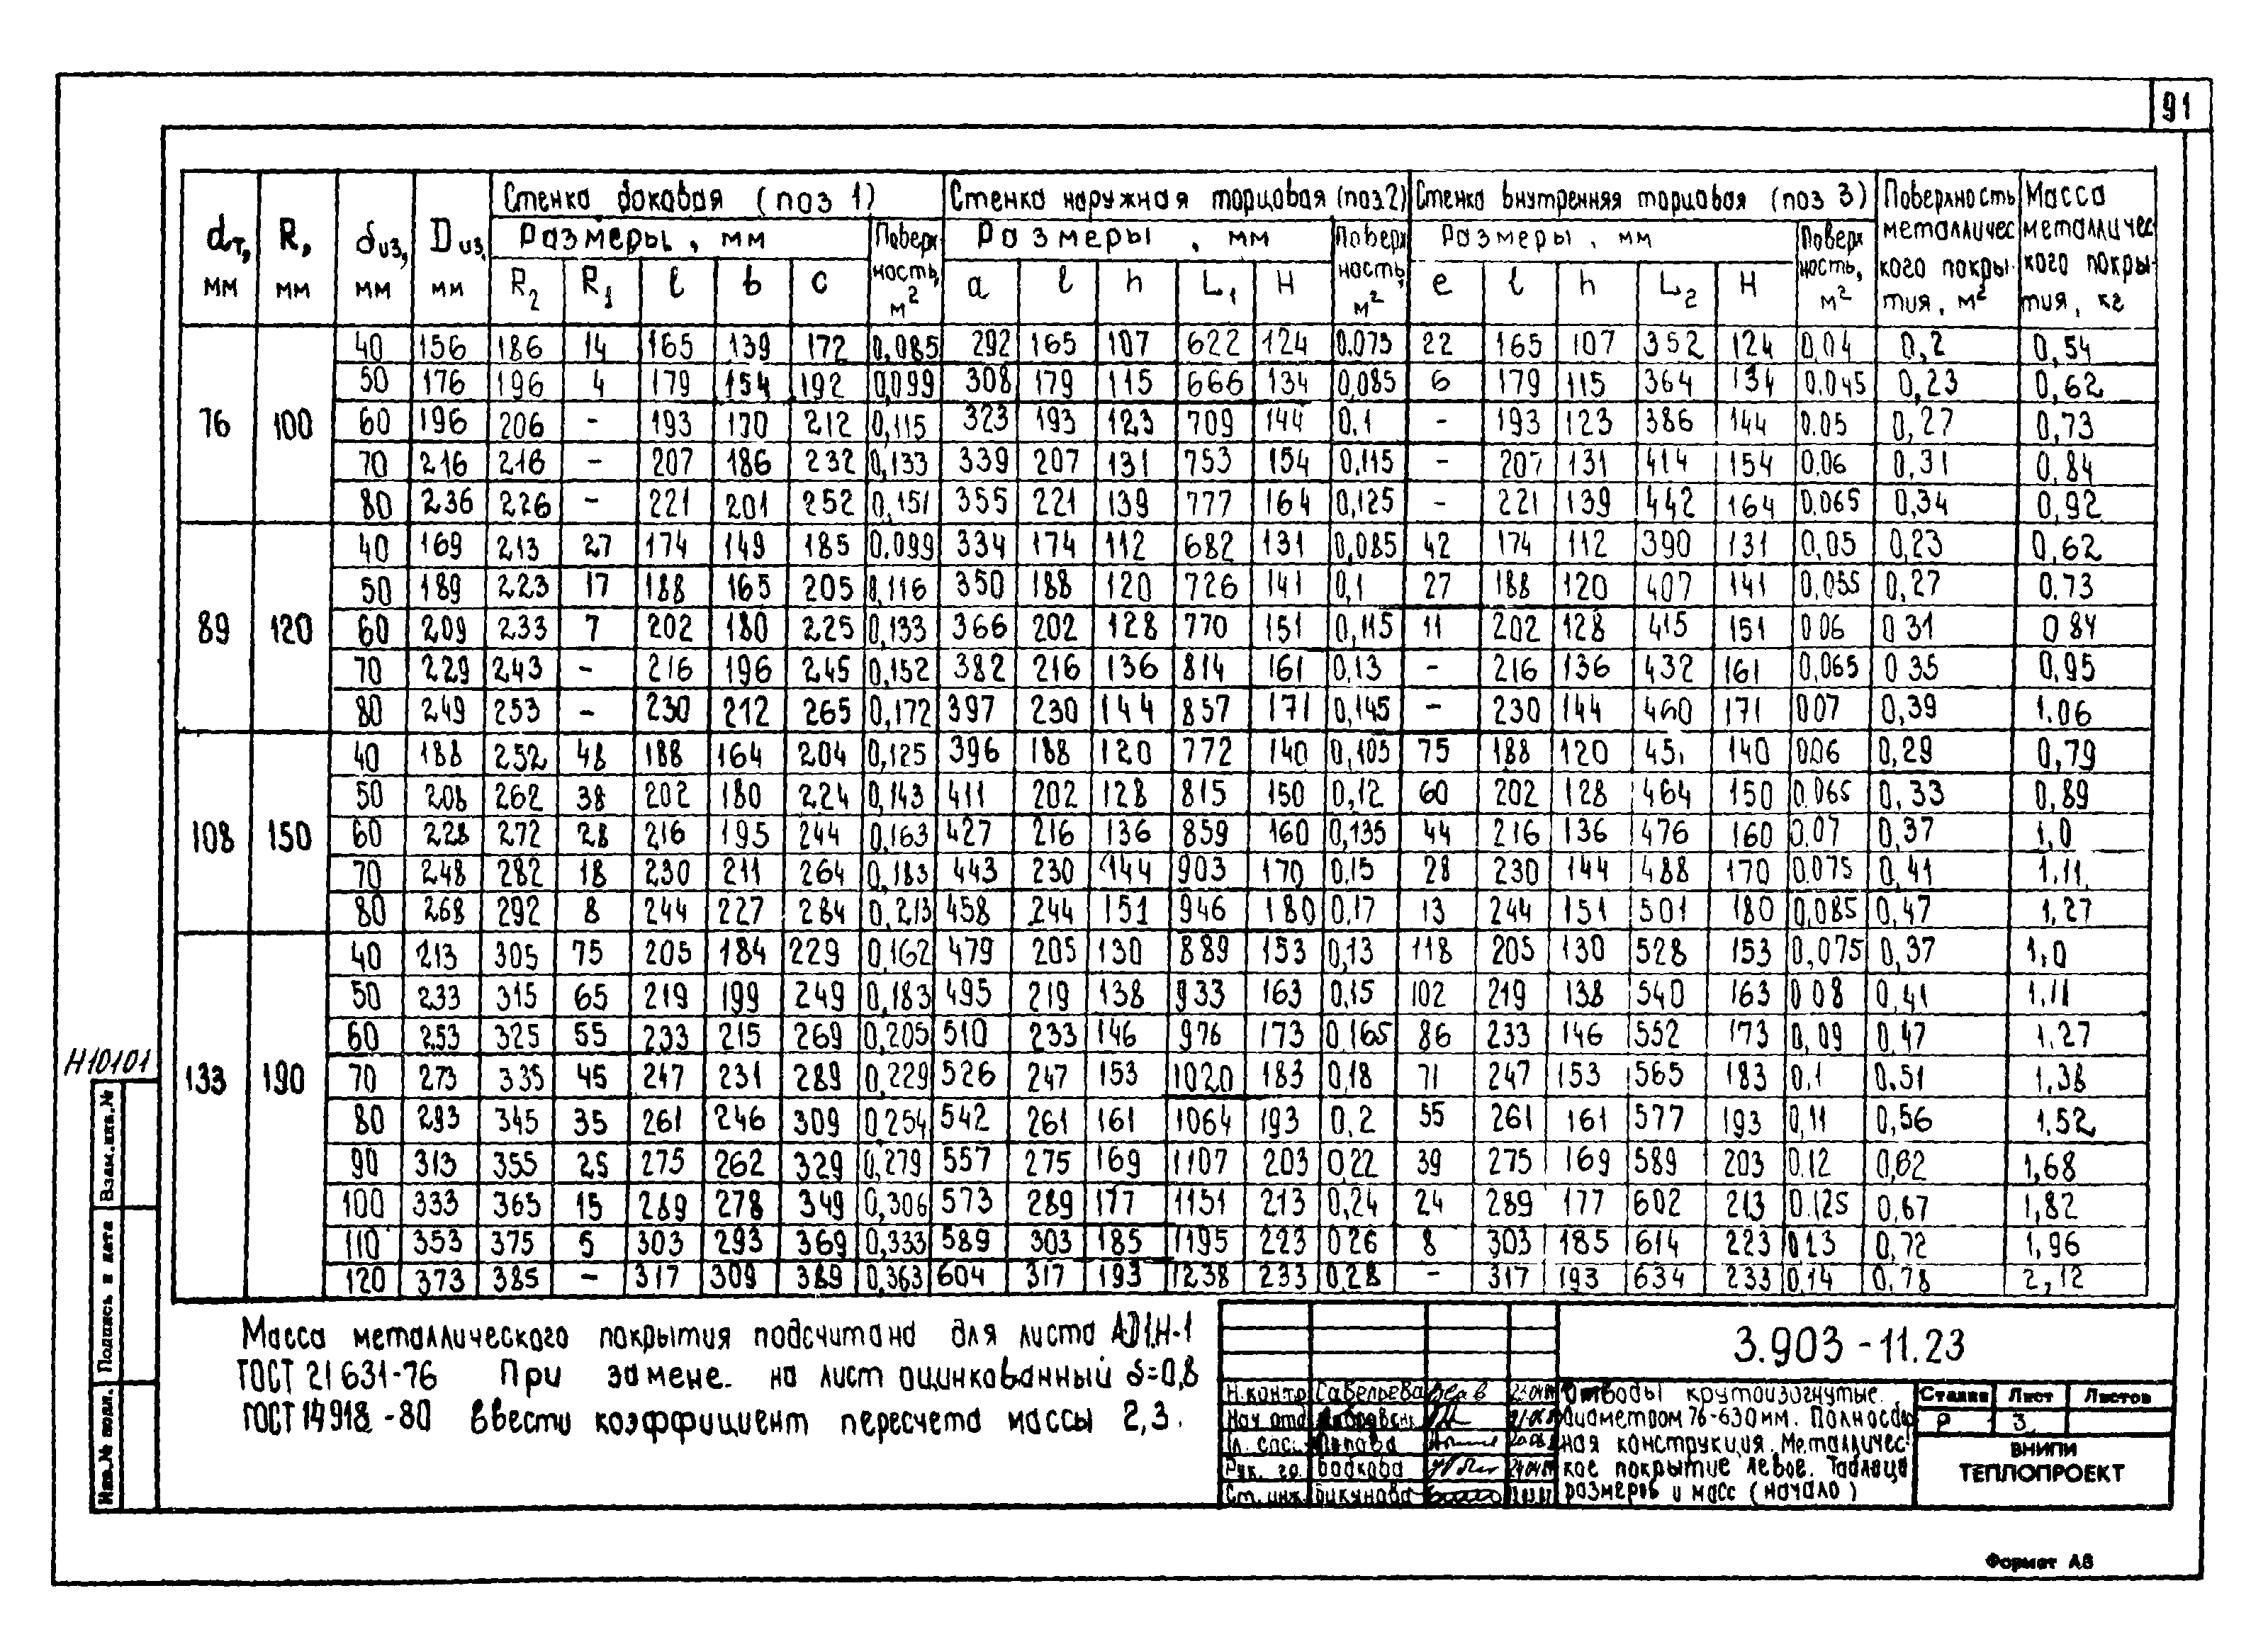 91
Стенка боковая (поз 1) Стенка наружная торцовая (поз2) Стенка внутренняя торцовая (поз 3) Поверхность металличес кого покры- тия, м² Масса металличес кого покры- тия, кг
dт, мм R, мм δиз, мм Dиз, мм Размеры, мм Поверх ность, м² Размеры, мм Поверх ность, м² Размеры, мм Поверх ность, м²
R2 R1 l b c a l h L1 H e l h L2 H
76 100
40 156 186 14 165 139 172 0,085 292 165 107 622 124 0.073 22 165 107 352 124 0,04 0,2 0,54
50 176 196 4 179 154 192 0,099 308 179 115 666 134 0,085 6 179 115 364 134 0.045 0,23 0,62
60 196 206 - 193 170 212 0,115 323 193 123 709 144 0.1 - 193 123 386 144 0.05 0,27 0,73
70 216 216 - 207 186 232 0,133 339 207 131 753 154 0,115 - 207 131 414 154 0.06 0,31 0,84
80 236 226 - 221 201 252 0,151 355 221 139 777 164 0,125 - 221 139 442 164 0.065 0,34 0,92
89 120
40 169 213 27 174 149 185 0.099 334 174 112 682 131 0,085 42 174 112 390 131 0,05 0,23 0,62
50 189 223 17 188 165 205 0,116 350 188 120 726 141 0,1 27 188 120 407 141 0,055 0,27 0.73
60 209 233 7 202 180 225 0,133 366 202 128 770 151 0,115 11 202 128 415 151 0 06 0 31 0 84
70 229 243 - 216 196 245 0,152 382 216 136 814 161 0,13 - 216 136 432 161 0,065 0 35 0,95
80 249 253 - 230 212 265 0,172 397 230 144 857 171 0,145 - 230 144 460 171 0 07 0,39 1.06
108 150
40 188 252 48 188 164 204 0,125 396 188 120 772 140 0,105 75 188 120 451 140 0.06 0,29 0,79
50 208 262 38 202 180 224 0,143 411 202 128 815 150 0,12 60 202 128 464 150 0.065 0,33 0,89
60 228 272 28 216 195 244 0,163 427 216 136 859 160 0,135 44 216 136 476 160 0.07 0,37 1.0
70 248 282 18 230 211 264 0,183 443 230 144 903 170 0,15 28 230 144 488 170 0.075 0,41 1,11
80 268 292 8 244 227 284 0,213 458 244 151 946 180 0,17 13 244 151 501 180 0,085 0,47 1,27
133 190
40 213 305 75 205 184 229 0,162 479 205 130 889 153 0,13 118 205 130 528 153 0,075 0,37 1,0
50 233 315 65 219 199 249 0,183 495 219 138 933 163 0,15 102 219 138 540 163 0 08 0,41 1,11
60 253 325 55 233 215 269 0,205 510 233 146 976 173 0,165 86 233 146 552 173 0,09 0.47 1.27
70 273 335 45 247 231 289 0,229 526 247 153 1020 183 0,18 71 247 153 565 183 0,1 0.51 1,38
80 293 345 35 261 246 309 0 254 542 261 161 1064 193 0,2 55 261 161 577 193 0,11 0,56 1,52
90 313 355 25 275 262 329 0,279 557 275 169 1107 203 0 22 39 275 169 589 203 0.12 0,62 1,68
100 333 365 15 289 278 349 0,306 573 289 177 1151 213 0,24 24 289 177 602 213 0.125 0,67 1,82
110 353 375 5 303 293 369 0,333 589 303 185 1195 223 0 26 8 303 185 614 223 0 13 0,72 1,96
120 373 385 - 317 309 389 0,363 604 317 193 1238 233 0,28 - 317 193 634 233 0,14 0,78 2,12
Масса металлического покрытия подсчитана для листа АД1.Н-1
ГОСТ 21631-76 При замене на лист оцинкованный δ=0,8
ГОСТ 14918-80 ввести коэффициент пересчета массы 2,3.
3.903-11.23
Н.контр Савельева
Нач отд
Гл. спец. Попова
Рук. гр. Бобкова
Ст. инж. Бикунова
Отводы крутоизогнутые
диаметром 76-630мм. Полносбор
ная конструкция. Металличес
кое покрытие левое. Таблица
размеров и масс (начало)
Стадия Лист Листов
Р 3
ВНИПИ
ТЕПЛОПРОЕКТ
Н10101
Взам.инв.№
Подпись и дата
Инв.№ подл.
Формат А3